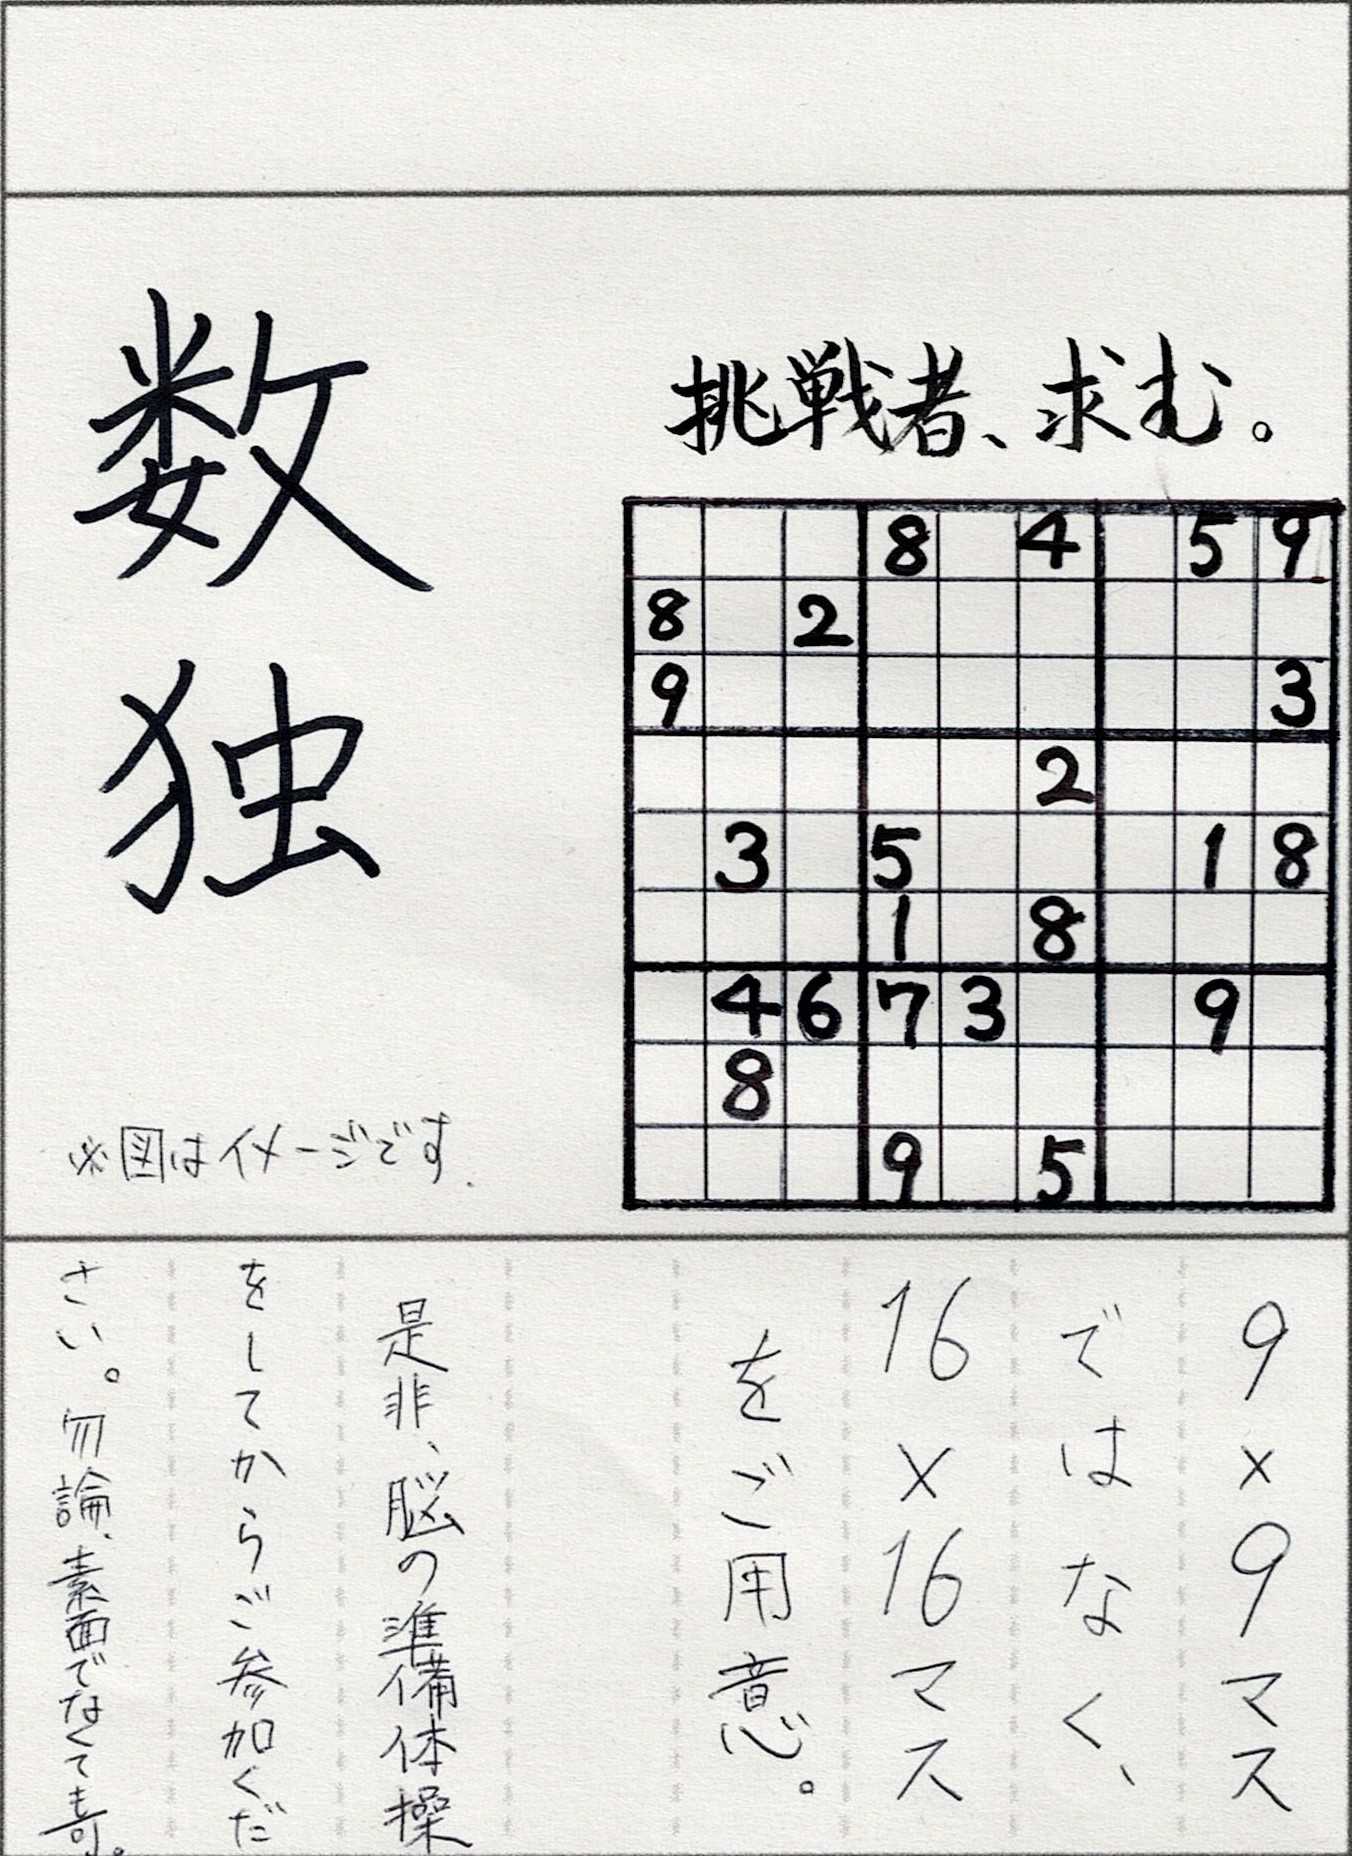 数独
挑戦者、求む。
8 4 5 9
8 2
9 3
2
3 5 1 8
1 8
4 6 7 3 9
8
9 5
※図はイメージです.
9×9マス
ではなく、
16×16マス
をご用意。
是非、脳の準備体操
をしてからご参加くだ
さい。勿論、素面でなくて可。